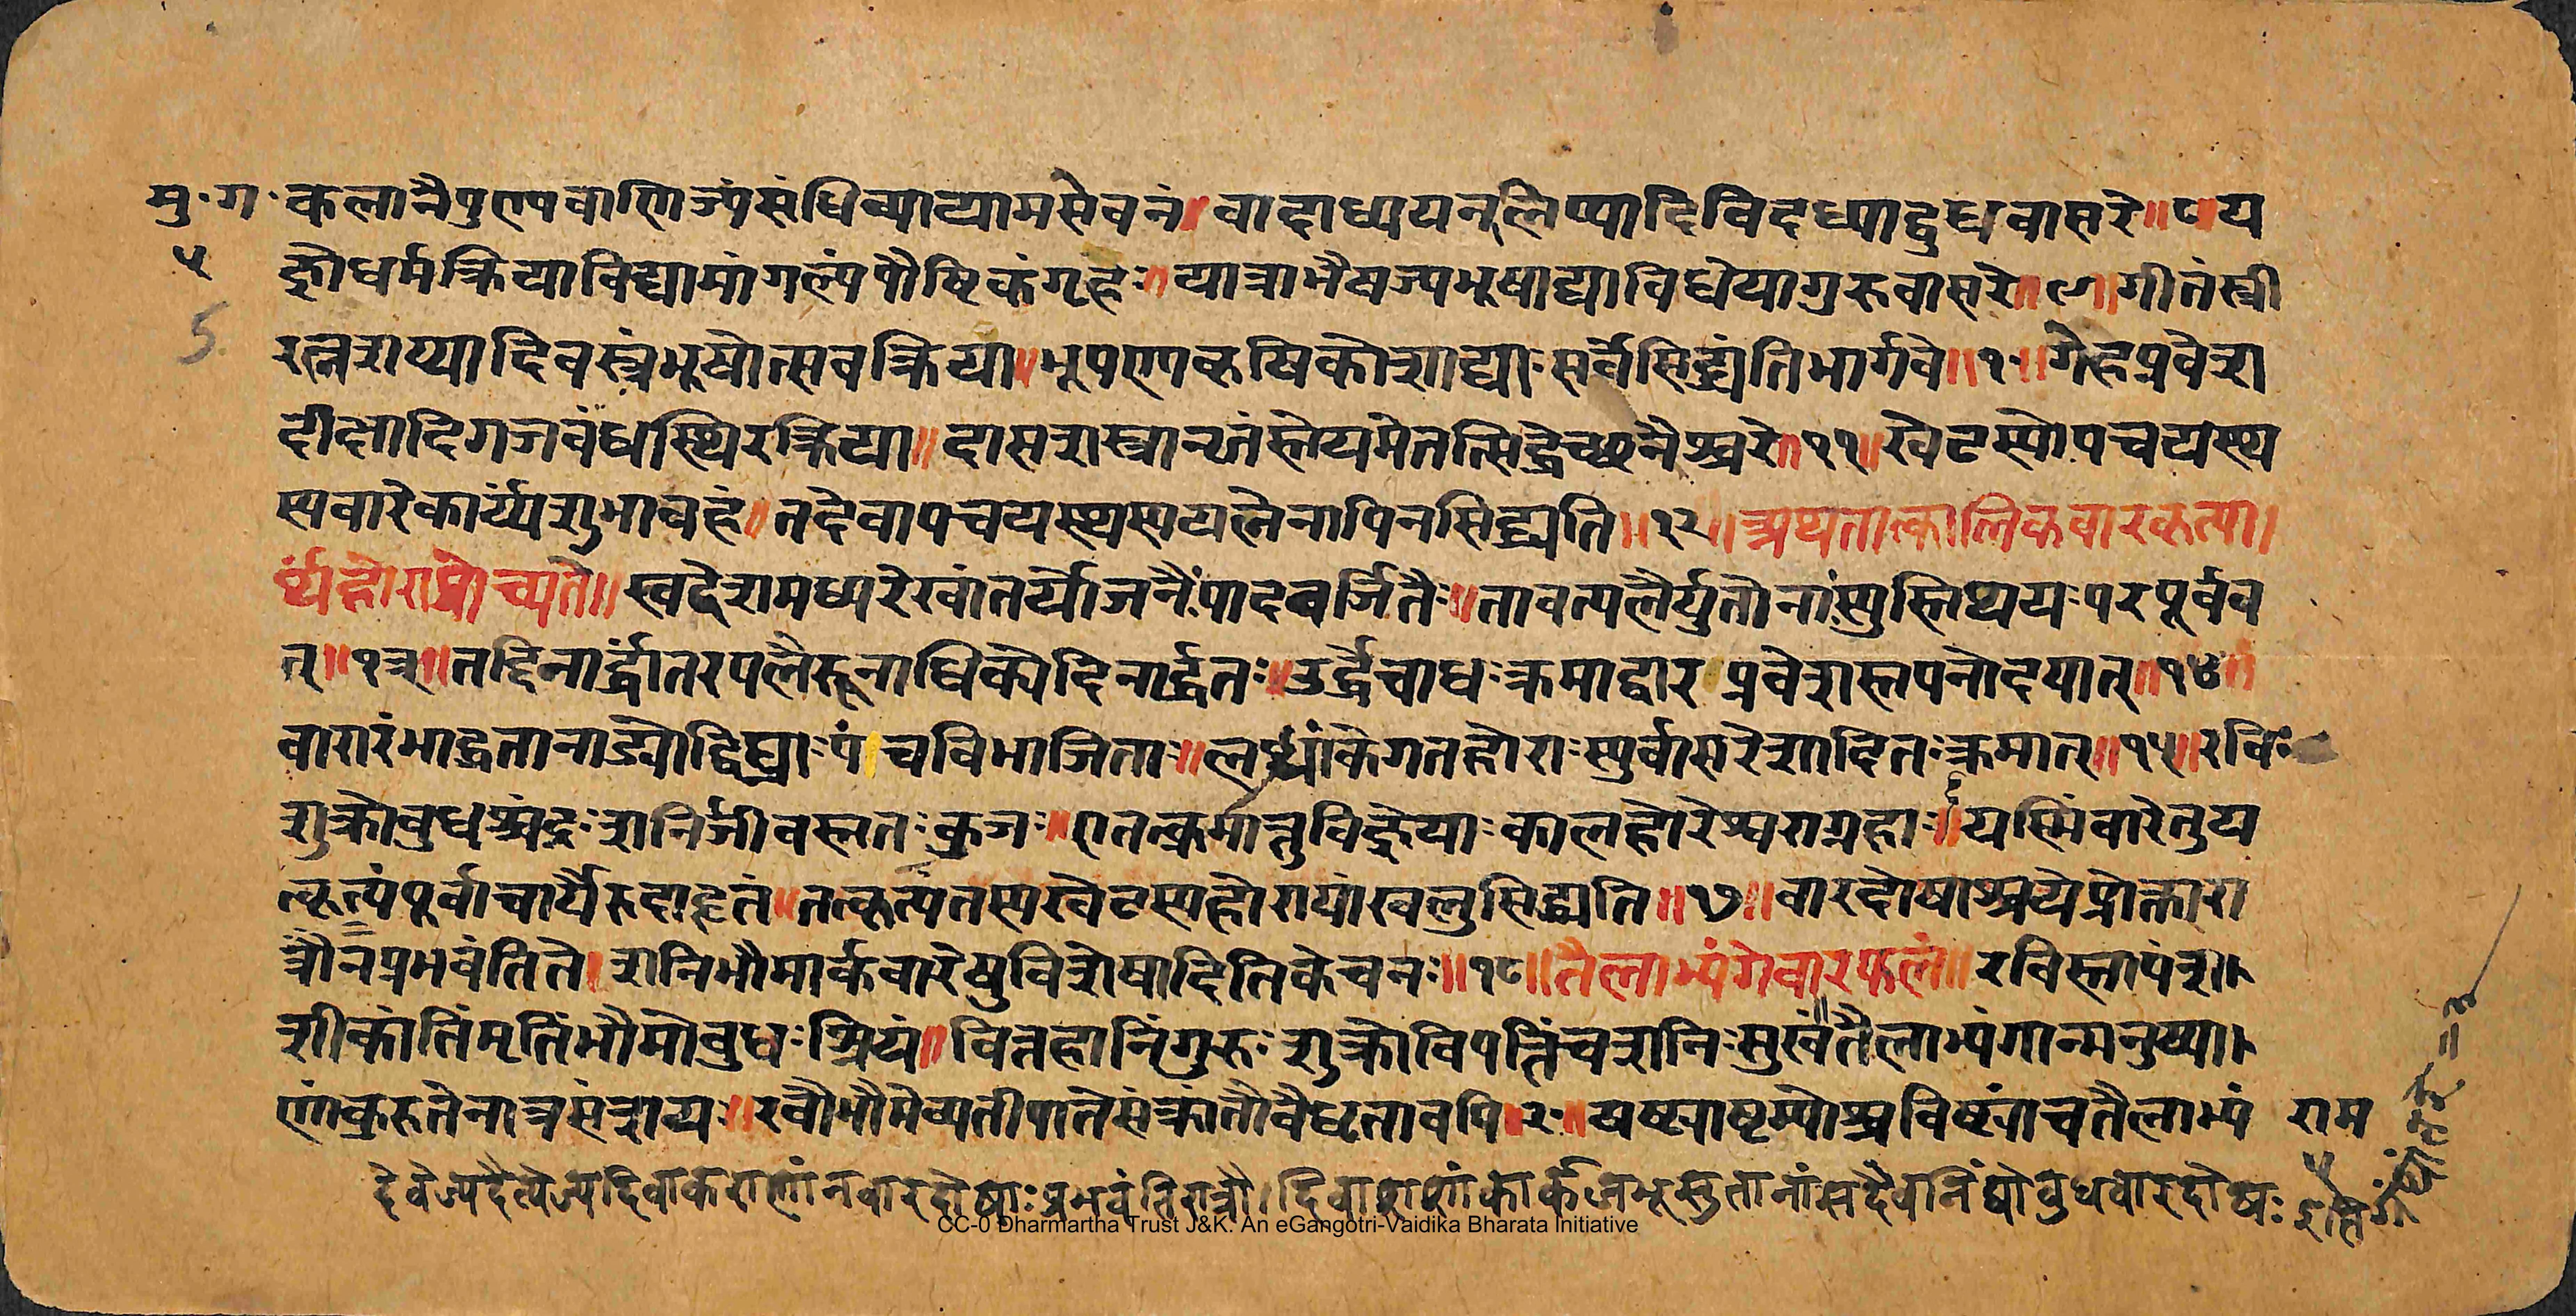 मु॰ग॰ कलानैपुण्यवाणिज्यंसंधिव्यायामसेवनं॥वादाध्ययनलिप्यादिविदध्याद्बुधवासरे॥८॥य
५ ज्ञोधर्मक्रियाविद्यामांगल्यंपौष्टिकंगृहं॥यात्राभैषज्यभूषाद्याविधेयागुरुवासरे॥९॥गीतंस्त्री
5
रत्नशय्यादिवस्त्रंभूषोत्सवक्रिया॥भूपण्यकृषिकोशाद्याःसर्वेसिद्ध्यंतिभार्गवे॥१०॥गेहप्रवेश
दीक्षादिगजबंधस्थिरक्रिया॥दासशस्त्रानृतंस्तेयमेतत्सिद्ध्येच्छनैश्चरे॥११॥खेटस्योपचयस्थ
स्यवारेकार्य्यंशुभावहं॥तदेवापचयस्थस्ययत्नेनापिनसिद्ध्यति॥१२॥अथतात्कालिकवारकृत्या।
र्थ्यंहोराप्रोच्यते॥स्वदेशमध्यरेखांतर्योजनैःपादवर्जितैः॥तावत्पलैर्युतोनांस्युस्तिथ्ययःपरपूर्वव
त्॥१३॥तद्दिनार्द्धांतरपलैरूनाधिकोदिनार्द्धतः॥उर्द्धंचाधःक्रमाद्वार प्रवेशस्तपनोदयात्॥१४॥
वारारंभाद्गतानाड्योद्विघ्नाःपंचविभाजिताः॥लब्ध्यांकेगतहोराःस्युर्वासरेशादितःक्रमात्॥१५॥रविः
शुक्रोबुधश्चंद्रःशनिर्जीवस्ततःकुजः॥एतत्क्रर्मात्तुविज्ञेयाःकालहोरेश्वराग्रहाः॥यस्मिंवारेतुय
त्कृत्यंपूर्वाचार्यैरुदाहृतं॥तत्कृत्यंतस्यखेटस्यहोरायांखलुसिद्ध्यति॥१७॥वारदोषाश्चयेप्रोक्तारा
त्रौनप्रभवंतिते।शनिभौमार्कवारेषुविशेषादितिकेचन॥१८॥तैलाभ्यंगेवारफलं॥रविस्तापंत्र॥
शीकांतिंमृतिंभौमोबुधःश्रियं॥वित्तहानिंगुरुःशुक्रोविपत्तिंचशनिःसुखं॥तैलाभ्यंगान्मनुष्या।
णांकुरुतेनात्रसंशयः॥रवौभौमेव्यतीपातेसंक्रांतौवैधृतावपि॥२०॥षष्ट्याष्टम्योश्चविष्ट्यांचतैलाभ्यं राम
देवेज्यदैत्येज्यदिवाकराणांनवारदोषाःप्रभवंतिरात्रौ।दिवाशशांकार्कजभूसुतानांसदैवनिंद्योबुधवारदोषः ५
CC-0 Dharmartha Trust J&K. An eGangotri-Vaidika Bharata Initiative